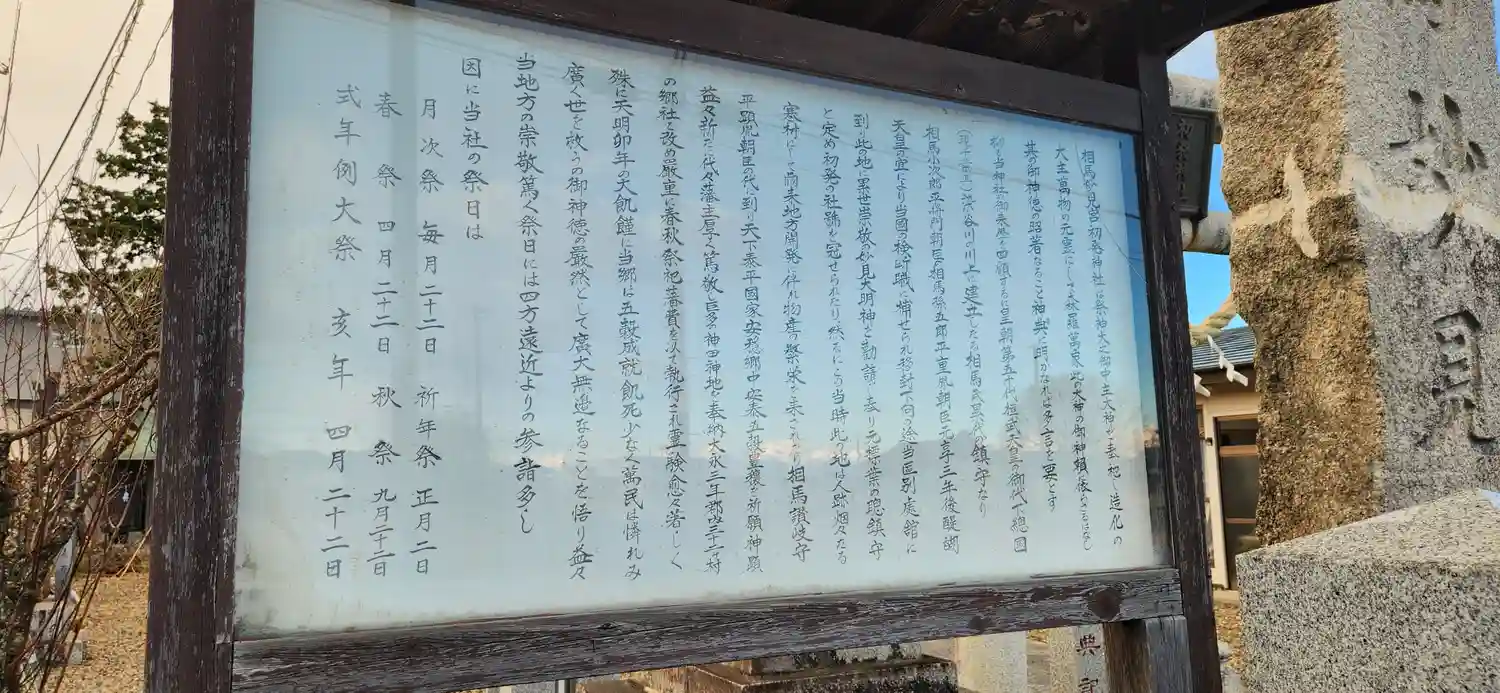 相馬妙見宮初発神社は祭神天之御中主大神を奉祀し造化の
大主萬物の元霊にして森羅萬象此の大神の御神頼に依らざるはなし
其の御神徳の照著なること神典に明かなれば多言を要とす
抑も当神社の御来歴を回顧するに皇朝第五十代桓武天皇の御代下総国
深谷川の川上に建立したる相馬氏累代の鎮守なり
相馬小次郎平将門朝臣相馬孫五郎平重胤朝臣元亨三年後醍醐
天皇の宣により当国の検断職に補せられ移封下向の途当区別處館に
到り此の地に累世崇敬の妙見大明神を勧請し奉り元標葉の總鎮守
と定め初発の社號を冠せられたり然るにこの当時此の地は人跡烟々たる
寒村にして爾来地方開発に伴れ物産の繁栄を来されたり相馬讃岐守
平顕胤朝臣の代に到り天下泰平國家安穏郷中安泰五穀豊穣を祈願神顕
益々新たに代々藩主厚く篤敬し巨多の神田神地を奉納大永三年郡内三十二村
の郷社と改め厳重に春秋祭祀並費を以て執行され霊験愈々著しく
殊に天明卯年の大飢饉に当郷は五穀成就飢死少なく萬民は憐れみ
廣く世を救うの御神徳の厳然として廣大無邊なることを悟り益々
当地方の崇敬篤く祭日には四方遠近よりの参詣多し
因に当社の祭日は
月次祭 毎月二十二日 祈年祭 正月二日
春祭 四月二十二日 秋祭 九月二十二日
式年例大祭 亥年 四月二十二日